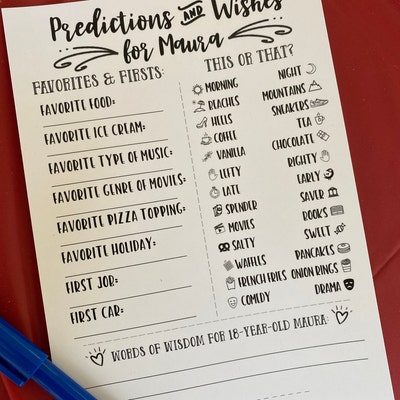 Predictions AND Wishes
for Maura
FAVORITES & FIRSTS:
FAVORITE FOOD:
FAVORITE ICE CREAM:
FAVORITE TYPE OF MUSIC:
FAVORITE GENRE OF MOVIES:
FAVORITE PIZZA TOPPING:
FAVORITE HOLIDAY:
FIRST JOB:
FIRST CAR:
THIS OR THAT?
MORNING NIGHT
BEACHES MOUNTAINS
HEELS SNEAKERS
COFFEE TEA
VANILLA CHOCOLATE
LEFTY RIGHTY
LATE EARLY
SPENDER SAVER
MOVIES BOOKS
SALTY SWEET
WAFFLES PANCAKES
FRENCH FRIES ONION RINGS
COMEDY DRAMA
WORDS OF WISDOM FOR 18-YEAR-OLD MAURA: